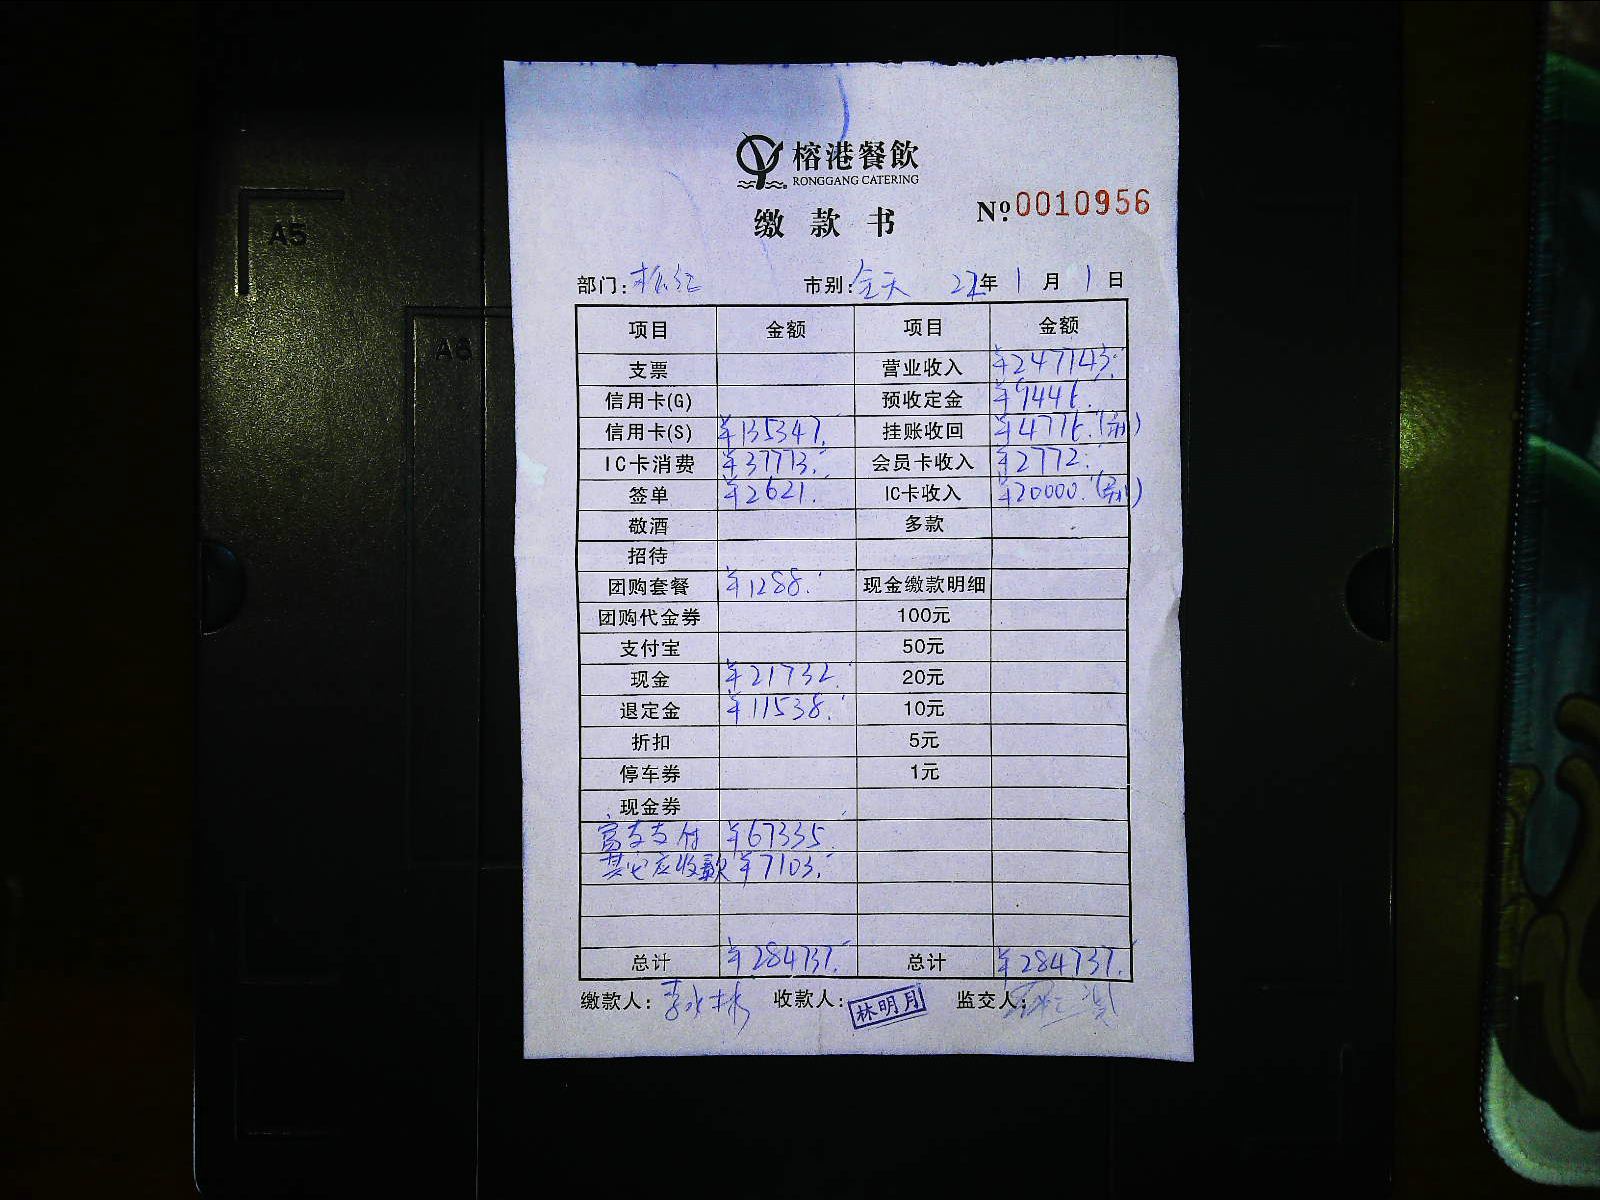 A5
A6
榕港餐飲
RONGGANG CATERING
缴款书 Nº.0010956
部门: 市别:全天 22年1月1日
项目 金额 项目 金额
支票 营业收入 ¥247743.
信用卡(G) 预收定金 ¥9446.
信用卡(S) ¥135347. 挂账收回 ¥4776.
IC卡消费 ¥37773. 会员卡收入 ¥2772.
签单 ¥2621. IC卡收入 ¥20000.
敬酒 多款
招待
团购套餐 ¥1288. 现金缴款明细
团购代金券 100元
支付宝 50元
现金 ¥21732. 20元
退定金 ¥11538. 10元
折扣 5元
停车券 1元
现金券
富友支付 ¥67335.
其它应收款 ¥7103.
总计 ¥284737. 总计 ¥284737.
缴款人:李水林 收款人:林明月 监交人: